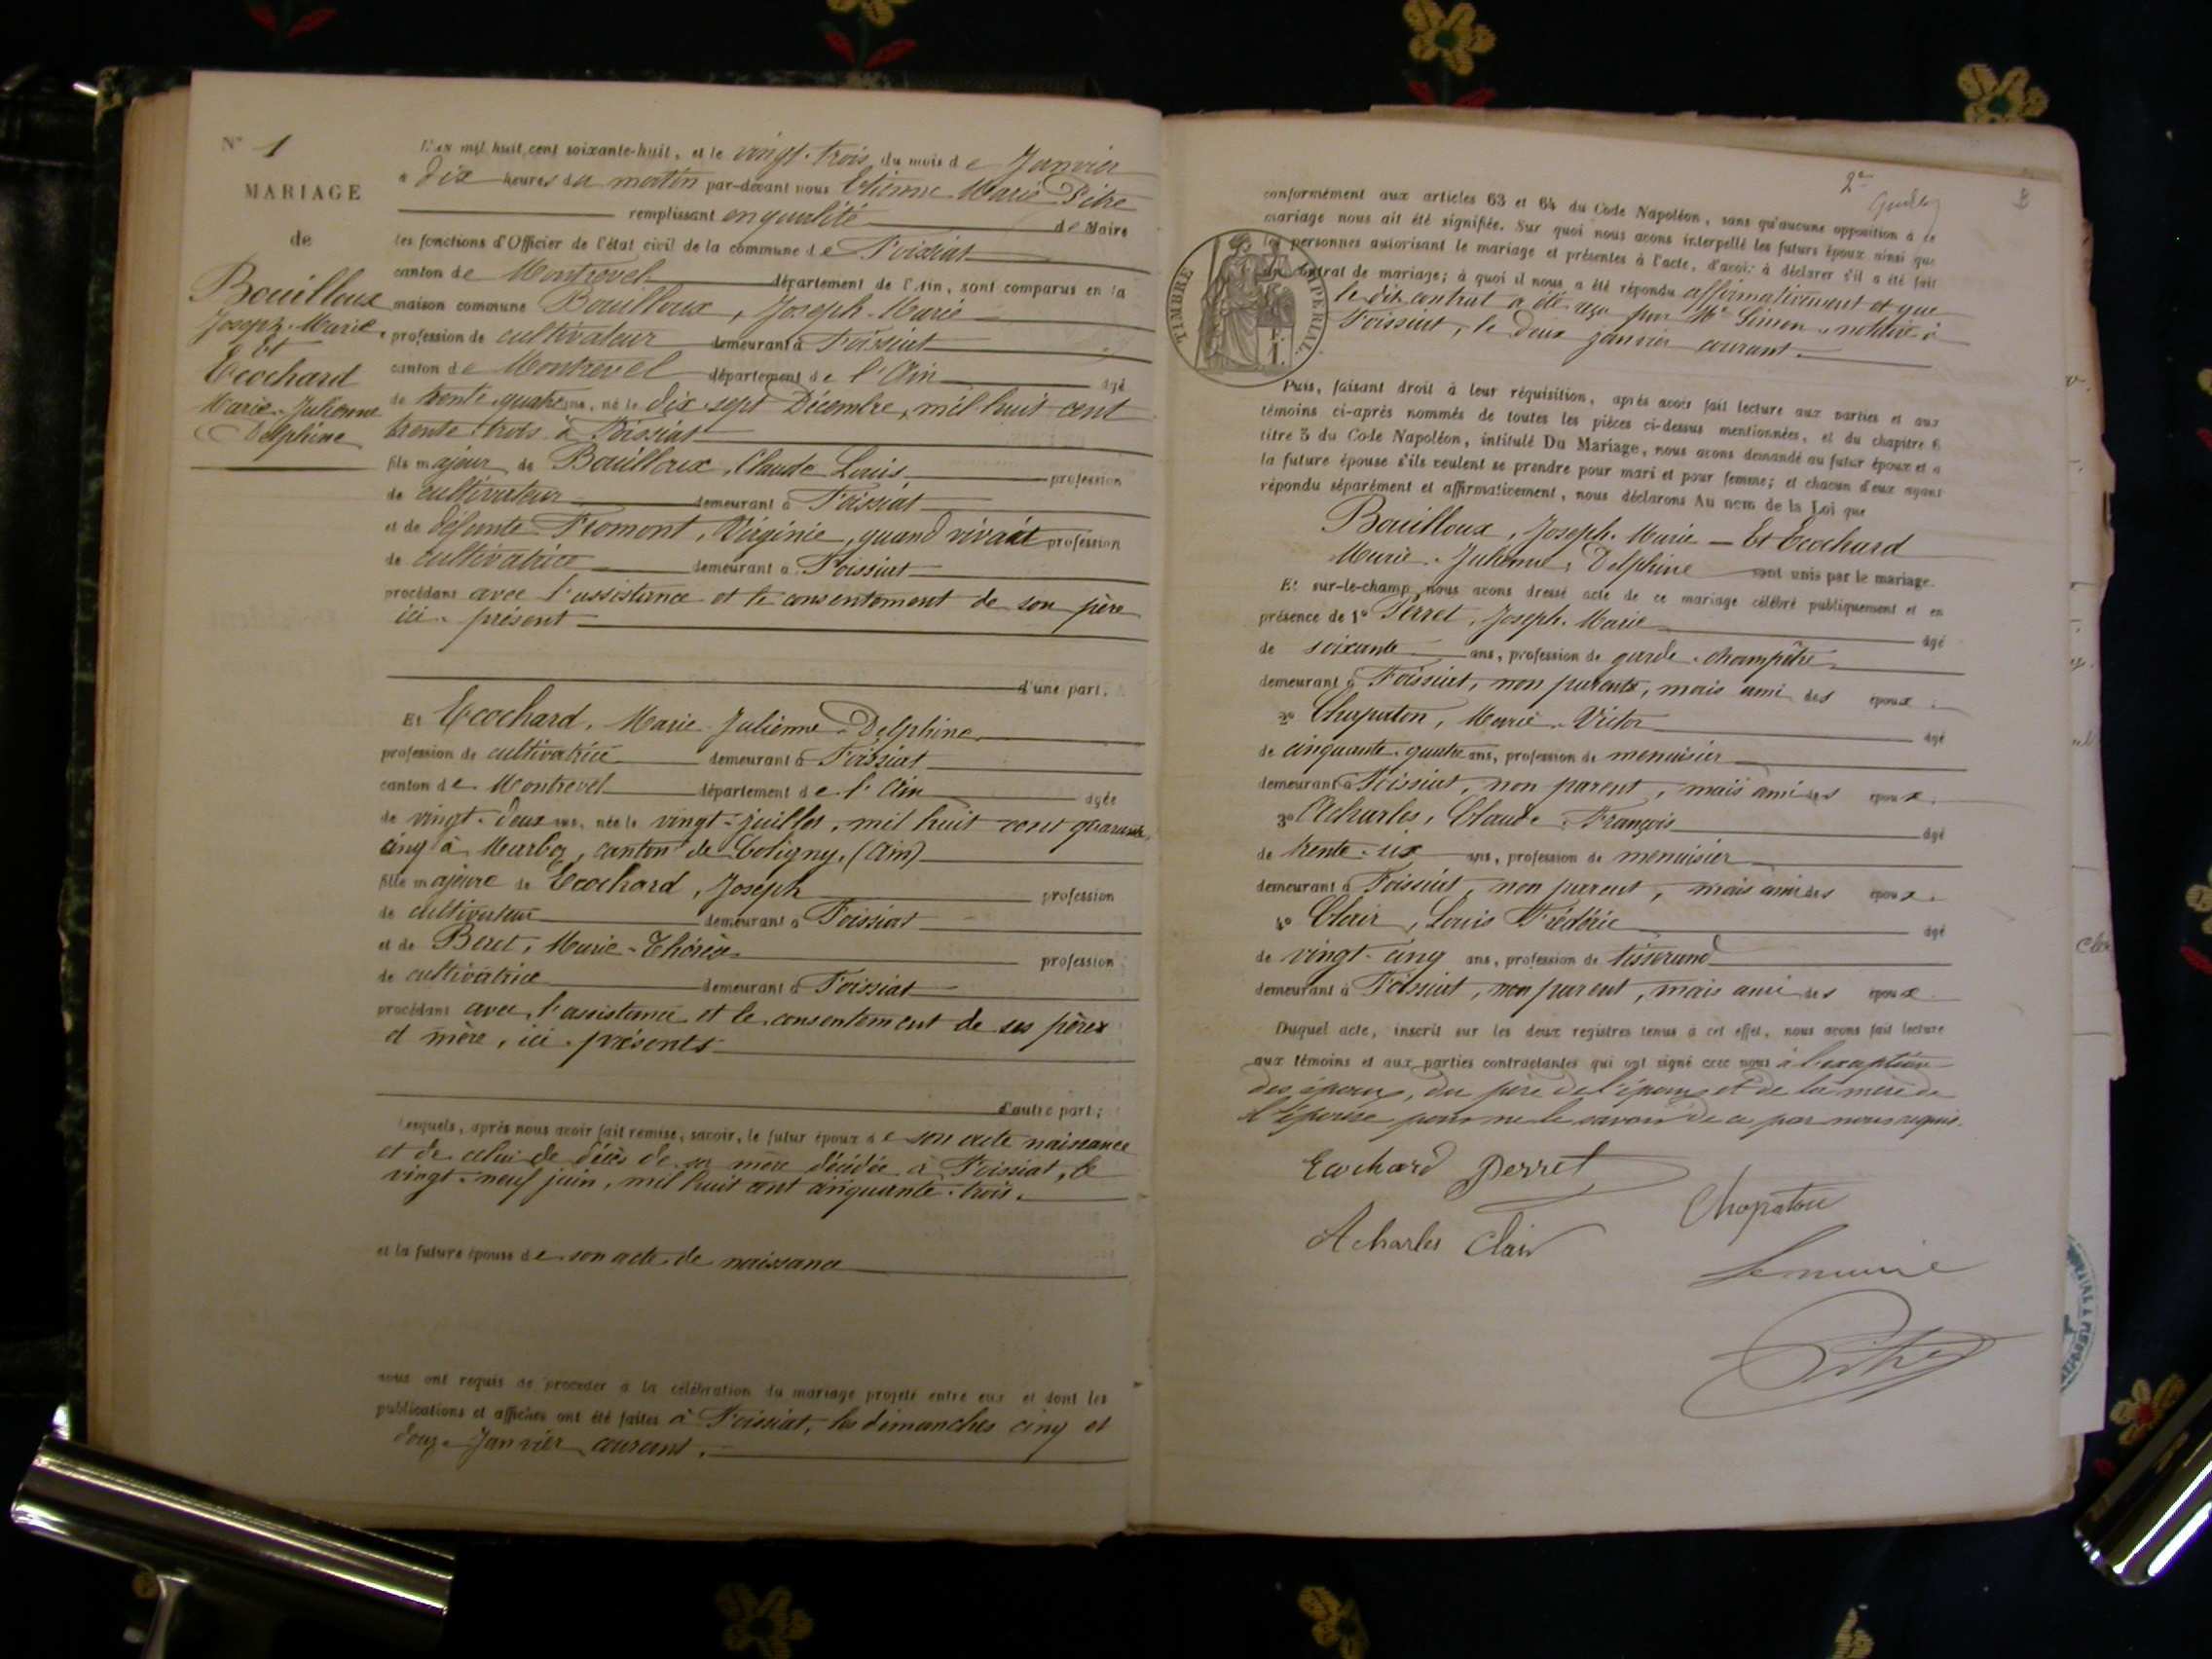 N° 1
MARIAGE
de
Bouilloux
Joseph-Marie,
Et
Ecochard
Marie-Julienne
Delphine
L'an mil huit cent soixante-huit, et le vingt-trois du mois de Janvier
à dix heures du matin par-devant nous Etienne Marie Pitre
remplissant en qualité de Maire
les fonctions d'Officier de l'état civil de la commune de Foissiat
canton de Montrevel département de l'Ain, sont comparus en la
maison commune Bouilloux, Joseph-Marie
profession de cultivateur demeurant à Foissiat
canton de Montrevel département de l'Ain âgé
de trente-quatre ans, né le dix-sept Décembre, mil huit cent
trente trois à Foissiat
fils majeur de Bouilloux, Claude Louis profession
de cultivateur demeurant à Foissiat
et de défunte Fromont, Virginie, quand vivait profession
de cultivatrice demeurant à Foissiat
procédant avec l'assistance et le consentement de son père
ici présent
d'une part,
Et Ecochard, Marie-Julienne-Delphine
profession de cultivatrice demeurant à Foissiat
canton de Montrevel département de l'Ain âgée
de vingt-deux ans, née le vingt juillet, mil huit cent quarante
cinq à Marboz, canton de Coligny, (Ain)
fille majeure de Ecochard, Joseph profession
de cultivateur demeurant à Foissiat
et de Beret, Marie-Thérèse profession
de cultivatrice demeurant à Foissiat
procédant avec l'assistance et le consentement de ses père
et mère, ici présents
d'autre part;
Lesquels, après nous avoir fait remise, savoir, le futur époux de son acte naissance
et de celui de décès de sa mère décédée à Foissiat, le
vingt-neuf juin, mil huit cent cinquante-trois.
et la future épouse de son acte de naissance
nous ont requis de procéder à la célébration du mariage projeté entre eux et dont les
publications et affiches ont été faites à Foissiat, les dimanches cinq et
douze Janvier courant.
2e
conformément aux articles 63 et 64 du Code Napoléon, sans qu'aucune opposition à ce
mariage nous ait été signifiée. Sur quoi nous avons interpellé les futurs époux ainsi que
les personnes autorisant le mariage et présentes à l'acte, d'avoir à déclarer s'il a été fait
un contrat de mariage; à quoi il nous a été répondu affirmativement et que
le dit contrat a été reçu par Me Simon, notaire à
Foissiat, le deux janvier courant.
TIMBRE IMPERIAL
Puis, faisant droit à leur réquisition, après avoir fait lecture aux parties et aux
témoins ci-après nommés de toutes les pièces ci-dessus mentionnées, et du chapitre 6
titre 5 du Code Napoléon, intitulé Du Mariage, nous avons demandé au futur époux et à
la future épouse s'ils veulent se prendre pour mari et pour femme; et chacun d'eux ayant
répondu séparément et affirmativement, nous déclarons Au nom de la Loi que
Bouilloux, Joseph-Marie — Et Ecochard
Marie-Julienne, Delphine sont unis par le mariage.
Et sur-le-champ nous avons dressé acte de ce mariage célébré publiquement et en
présence de 1° Perret, Joseph-Marie âgé
de soixante ans, profession de garde-champêtre
demeurant à Foissiat, non parents, mais ami des époux.
2° Chapaton, Marie-Victor âgé
de cinquante-quatre ans, profession de menuisier
demeurant à Foissiat, non parent, mais ami des époux.
3° Acharles, Claude François âgé
de trente-six ans, profession de menuisier
demeurant à Foissiat, non parent, mais ami des époux.
4° Clair, Louis Frédéric âgé
de vingt-cinq ans, profession de tisserand
demeurant à Foissiat, non parent, mais ami des époux.
Duquel acte, inscrit sur les deux registres tenus à cet effet, nous avons fait lecture
aux témoins et aux parties contractantes qui ont signé avec nous à l'exception
des époux, du père de l'époux et de la mère de
l'épouse pour ne le savoir de ce par nous requis.
Ecochard Perret
Chapaton
Acharles Clair
Le maire
Pitre